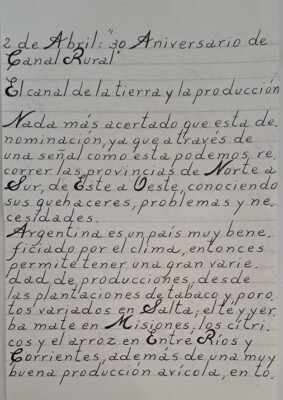 2 de Abril: "30 Aniversario de
Canal Rural"
El canal de la tierra y la producción
Nada más acertado que esta de_
nominación, ya que a través de
una señal como ésta podemos re_
correr las provincias de Norte a
Sur, de Este a Oeste, conociendo
sus quehaceres, problemas y ne_
cesidades.
Argentina es un país muy bene_
ficiado por el clima, entonces
permite tener una gran varie_
dad de producciones, desde
las plantaciones de tabaco y poro_
tos variados en Salta; el té y yer_
ba mate en Misiones; los cítri_
cos y el arroz en Entre Ríos y
Corrientes, además de una muy
buena producción avícola, en to_